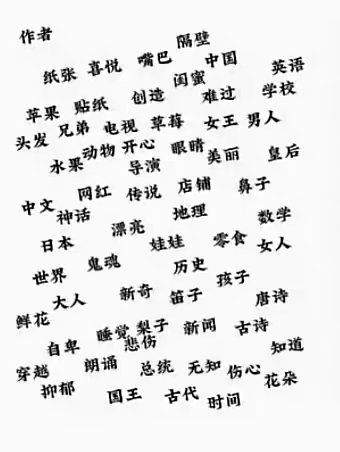 作者 隔壁
纸张 喜悦 嘴巴 中国 英语
闺蜜
苹果 贴纸 创造 难过 学校
头发 兄弟 电视 草莓 女王 男人
水果 动物 开心 眼睛 美丽 皇后
导演
中文 网红 传说 店铺 鼻子
神话 漂亮 地理 数学
日本 娃娃 零食 女人
世界 鬼魂 历史 孩子
大人 新奇 笛子 唐诗
鲜花
自卑 睡觉 梨子 新闻 古诗 知道
悲伤
穿越 朗诵 总统 无知 伤心 花朵
抑郁 国王 古代 时间